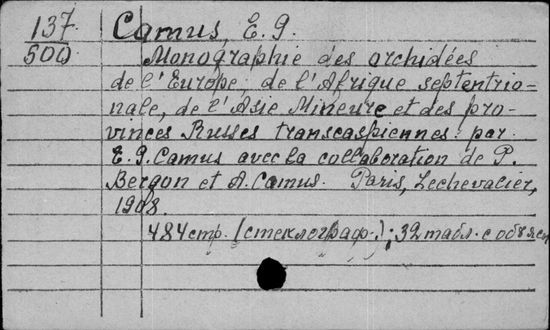 137
500
Camus, E. G.
Monographie des orchidées
de l'Europe, de l'Afrique septentrio-
nale, de l'Asie Mineure et des pro-
vinces Russes transcaspiennes: par
E. G. Camus avec la collaboration de P.
Bergon et A. Camus. Paris, Lechevalier,
1908.
484 стр. (стеклограф.); 32 табл. с